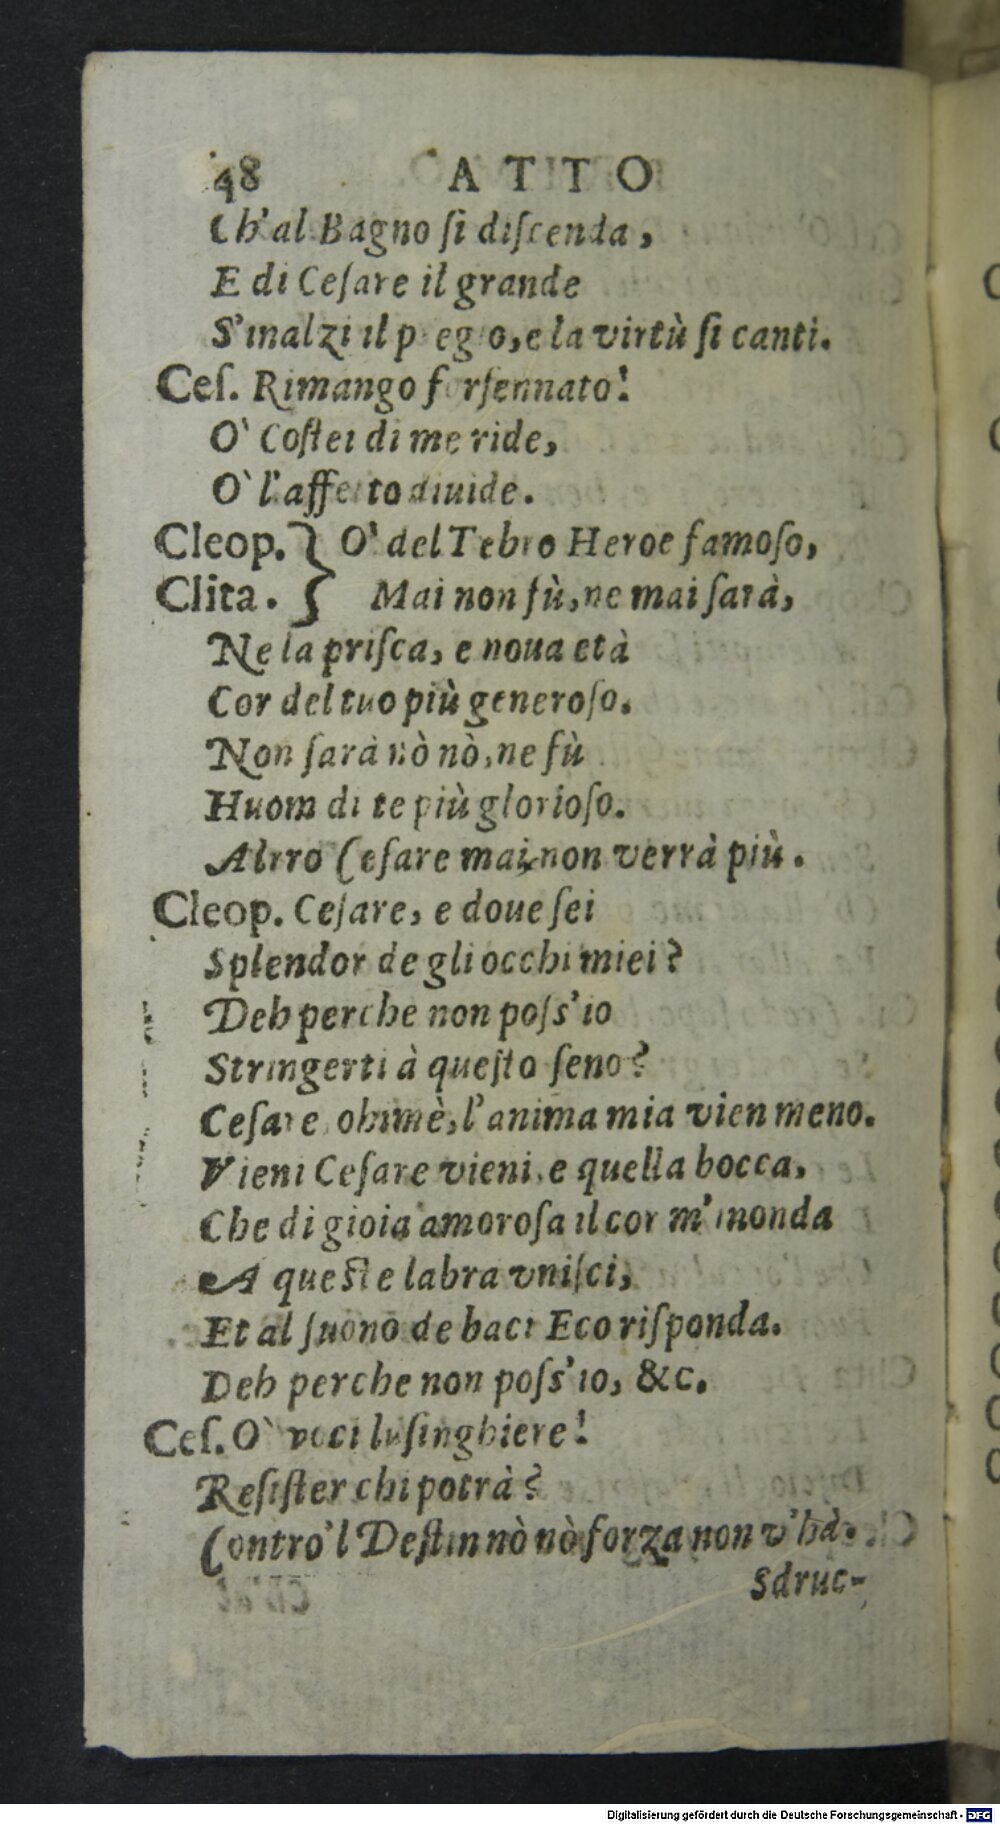 48 ATTO
Ch'al Bagno ſi diſcenda,
E di Ceſare il grande
S'inalzi il pregio, e la virtù ſi canti.
Ceſ. Rimango forſennato!
O' Coſtei di me ride,
O' l'affetto diuide.
Cleop. } O' del Tebro Heroe famoſo,
Clita. } Mai non fù, ne mai ſarà,
Ne la priſca, e noua età
Cor del tuo più generoſo.
Non ſarà nò nò, ne fù
Huom di te più glorioſo.
Altro Ceſare mai non verrà più.
Cleop. Ceſare, e doue ſei
Splendor de gli occhi miei?
Deh perche non poſs'io
Stringerti à queſto ſeno?
Ceſare ohimè, l'anima mia vien meno.
Vieni Ceſare vieni, e quella bocca,
Che di gioia amoroſa il cor m'inonda
A queſte labra vniſci,
Et al ſuono de baci Eco riſponda.
Deh perche non poſs'io, &c.
Ceſ. O' voci luſinghiere!
Reſiſter chi potrà?
Contro'l Deſtin nò nò forza non v'hà.
Sdruc-
Digitalisierung gefördert durch die Deutsche Forschungsgemeinschaft - DFG